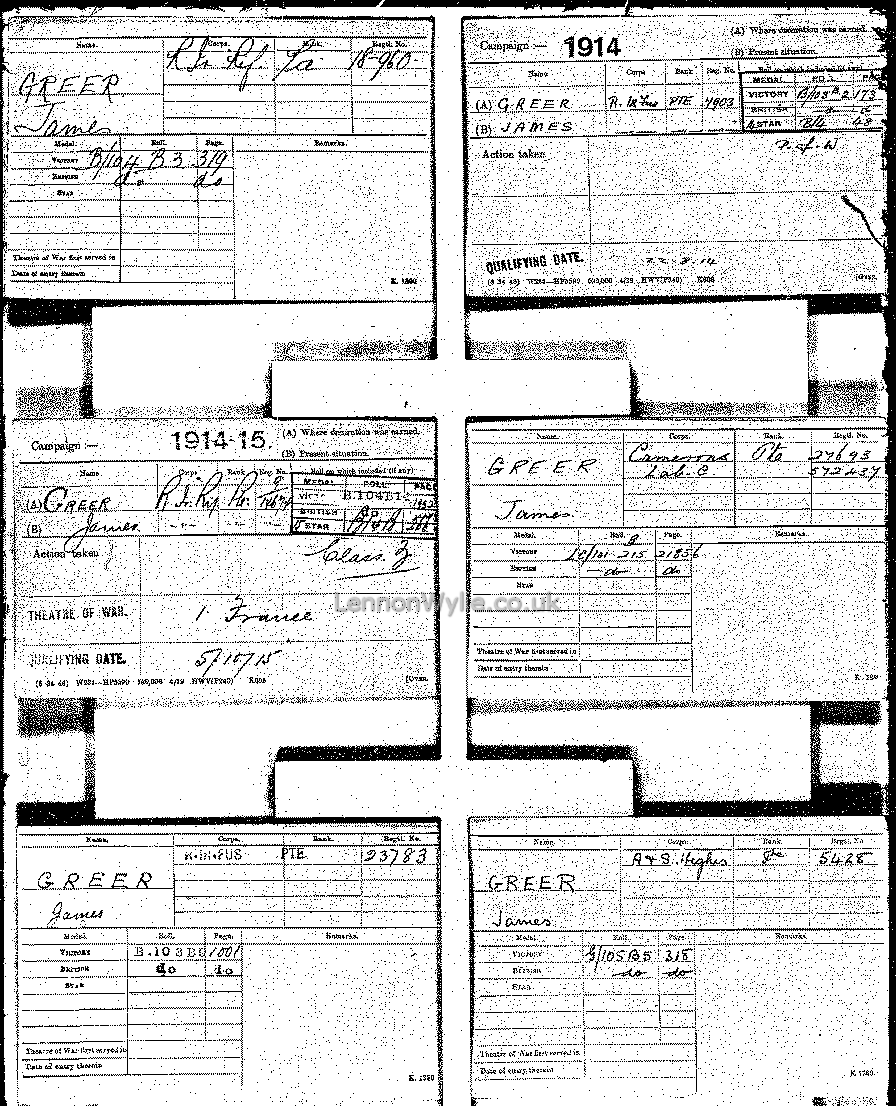 Name. Corps. Rank. Regtl. No.
GREER R. Ir. Rif. 18-960
James
Medal. Roll. Page. Remarks.
VICTORY B/104 B3 319
BRITISH do do
STAR
Theatre of War first served in
Date of entry therein
K. 1380
Campaign :— 1914 (A) Where decoration was earned.
(B) Present situation.
Name Corps Rank Reg. No. Roll on which included (if any)
MEDAL ROLL PAGE
(A) GREER PTE 7903 VICTORY 2173
BRITISH
(B) JAMES STAR 48
Action taken P. of W
QUALIFYING DATE. 22-8-14
(6 34 46) W234—HP5590 500,000 4/19 HWV(P240) K608 [Over.
Campaign :— 1914-15. (A) Where decoration was earned.
(B) Present situation.
Name Corps Rank Reg. No. Roll on which included (if any)
MEDAL ROLL PAGE
(A) GREER R. Ir. Rif. VICTORY B.104B1
BRITISH do
(B) James STAR
Action taken Class. Z
THEATRE OF WAR. 1 France
QUALIFYING DATE. 5/10/15
(6 34 46) W234—HP5590 500,000 4/19 HWV(P240) K608 [Over.
Name. Corps. Rank. Regtl. No.
Camerons Pte 27693
GREER Lab. C 572437
James
Medal. Roll. Page. Remarks.
VICTORY 215 21856
BRITISH do do
STAR
Theatre of War first served in
Date of entry therein
K. 1380
LennonWylie.co.uk
Name. Corps. Rank. Regtl. No.
PTE 23783
GREER
James
Medal. Roll. Page. Remarks.
VICTORY B.103B 1001
BRITISH do do
STAR
Theatre of War first served in
Date of entry therein
K. 1380
Name. Corps. Rank. Regtl. No.
A & S. Highrs Pte 5428
GREER
James
Medal. Roll. Page. Remarks.
VICTORY G/105B5 318
BRITISH do do
STAR
Theatre of War first served in
Date of entry therein
K. 1380